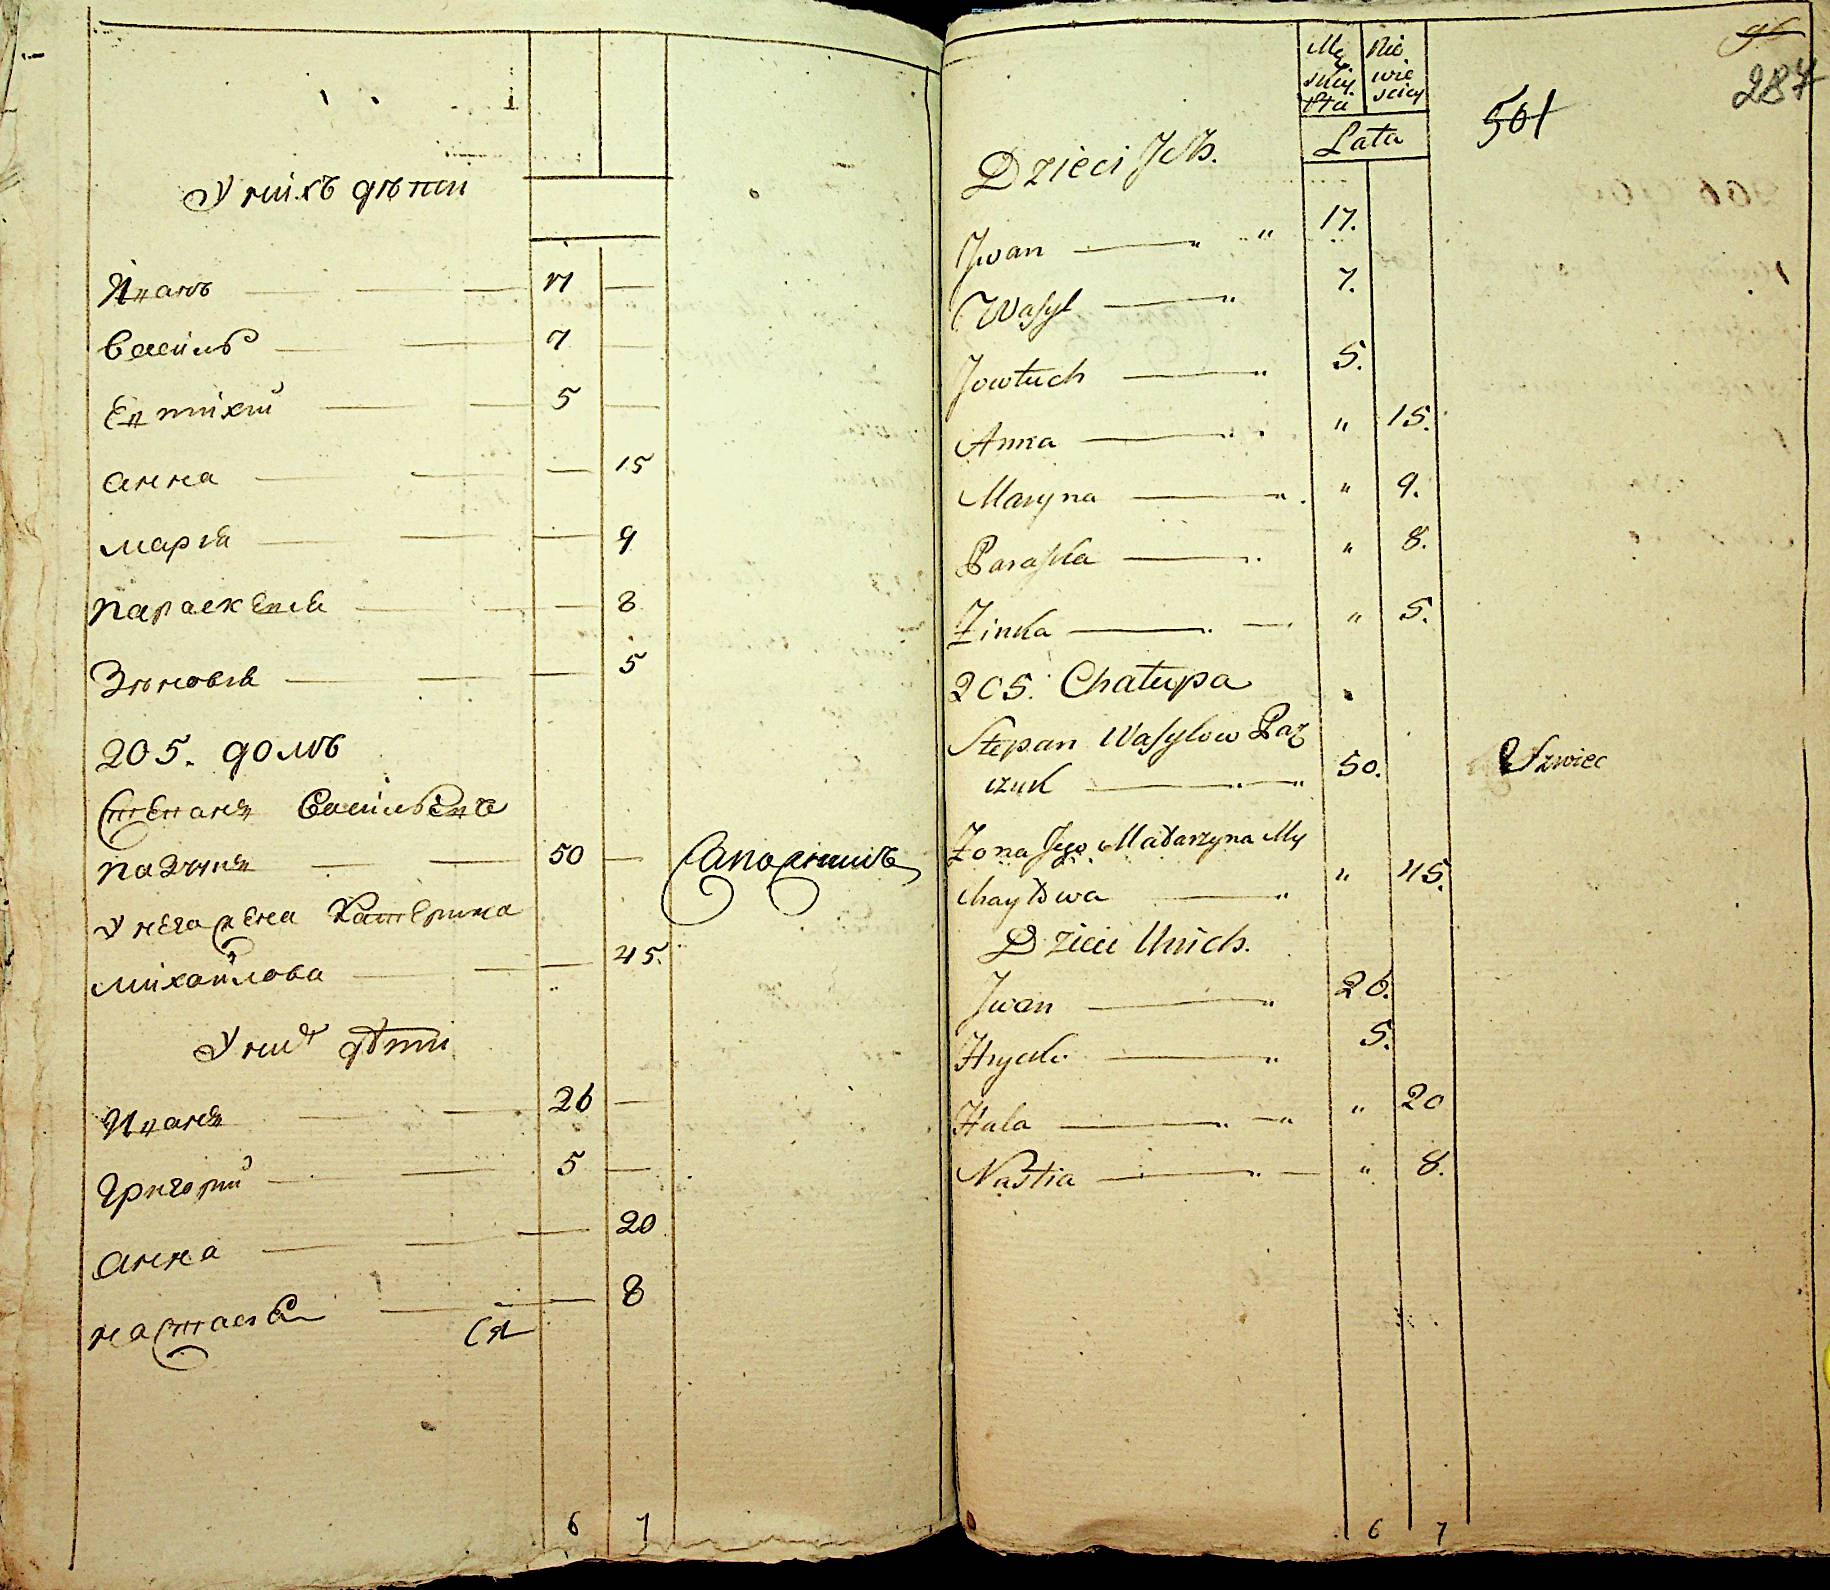 У нихъ дѣти
Иванъ 17
Василь 7
Евтихий 5
анна 15
мариа 9
параскевиа 8
Зѣновиа 5
205. домъ
Степанъ Василъевъ
пазчукъ 50 Сапожникъ
У него жена Катерина
михайлова 45.
У них дѣти
Иванъ 26
Григорий 5
анна 20
настасиа 8
6 7
Mę Nie
skiey wie
Płci sciey
96
287
501
Lata
Dzieci Ich.
Jwan 17.
Wasyl 7.
Jowtuch 5.
Anna " 15.
Maryna " 9.
Paraska " 8.
Zinka " 5.
205. Chałupa
Stepan Wasylow Paz
czuk 50. Szwiec
Zona Jego Katarzyna My
chayłowa " 45.
Dzieci Unich.
Jwan 26.
Hrycko 5.
Hala " 20
Nastia " 8.
6 7